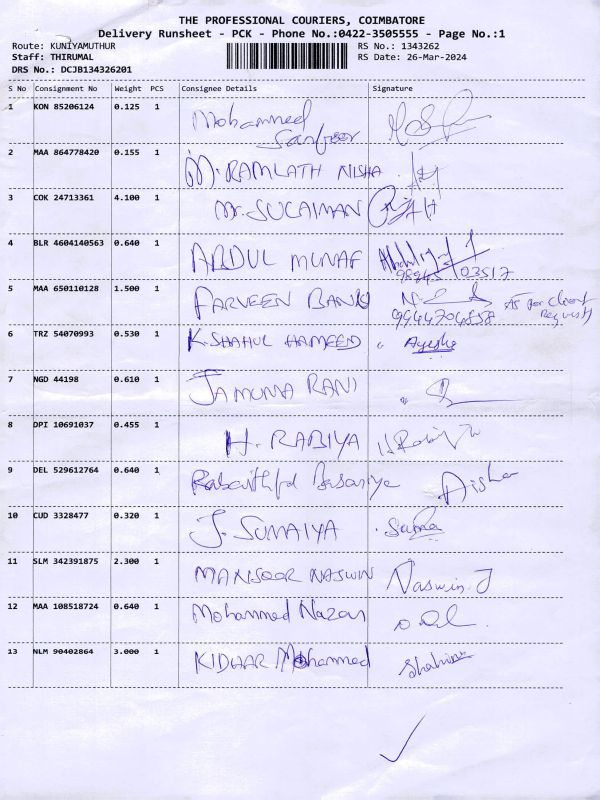 THE PROFESSIONAL COURIERS, COIMBATORE
Delivery Runsheet - PCK - Phone No.:0422-3505555 - Page No.:1
Route: KUNIYAMUTHUR RS No.: 1343262
Staff: THIRUMAL RS Date: 26-Mar-2024
DRS No.: DCJB134326201
S No Consignment No Weight PCS Consignee Details Signature
1 KON 85206124 0.125 1 Mohammed
2 MAA 864778420 0.155 1 M. RAMLATH NISHA
3 COK 24713361 4.100 1 Mr. SULAIMAN
4 BLR 4604140563 0.640 1 ABDUL MUNAF
98945 03517
5 MAA 650110128 1.500 1 PARVEEN BANU As per client
Request
6 TRZ 54070993 0.530 1 K. SHAHUL HAMEED Ayesha
7 NGD 44198 0.610 1 JAMUNA RANI
8 DPI 10691037 0.455 1 H. RABIYA
9 DEL 529612764 0.640 1 Aisha
10 CUD 3328477 0.320 1 J. SUMAIYA
11 SLM 342391875 2.300 1 MANSOOR NASWIN Naswin. J
12 MAA 108518724 0.640 1 Mohammed
13 NLM 90402864 3.000 1 Mohammed